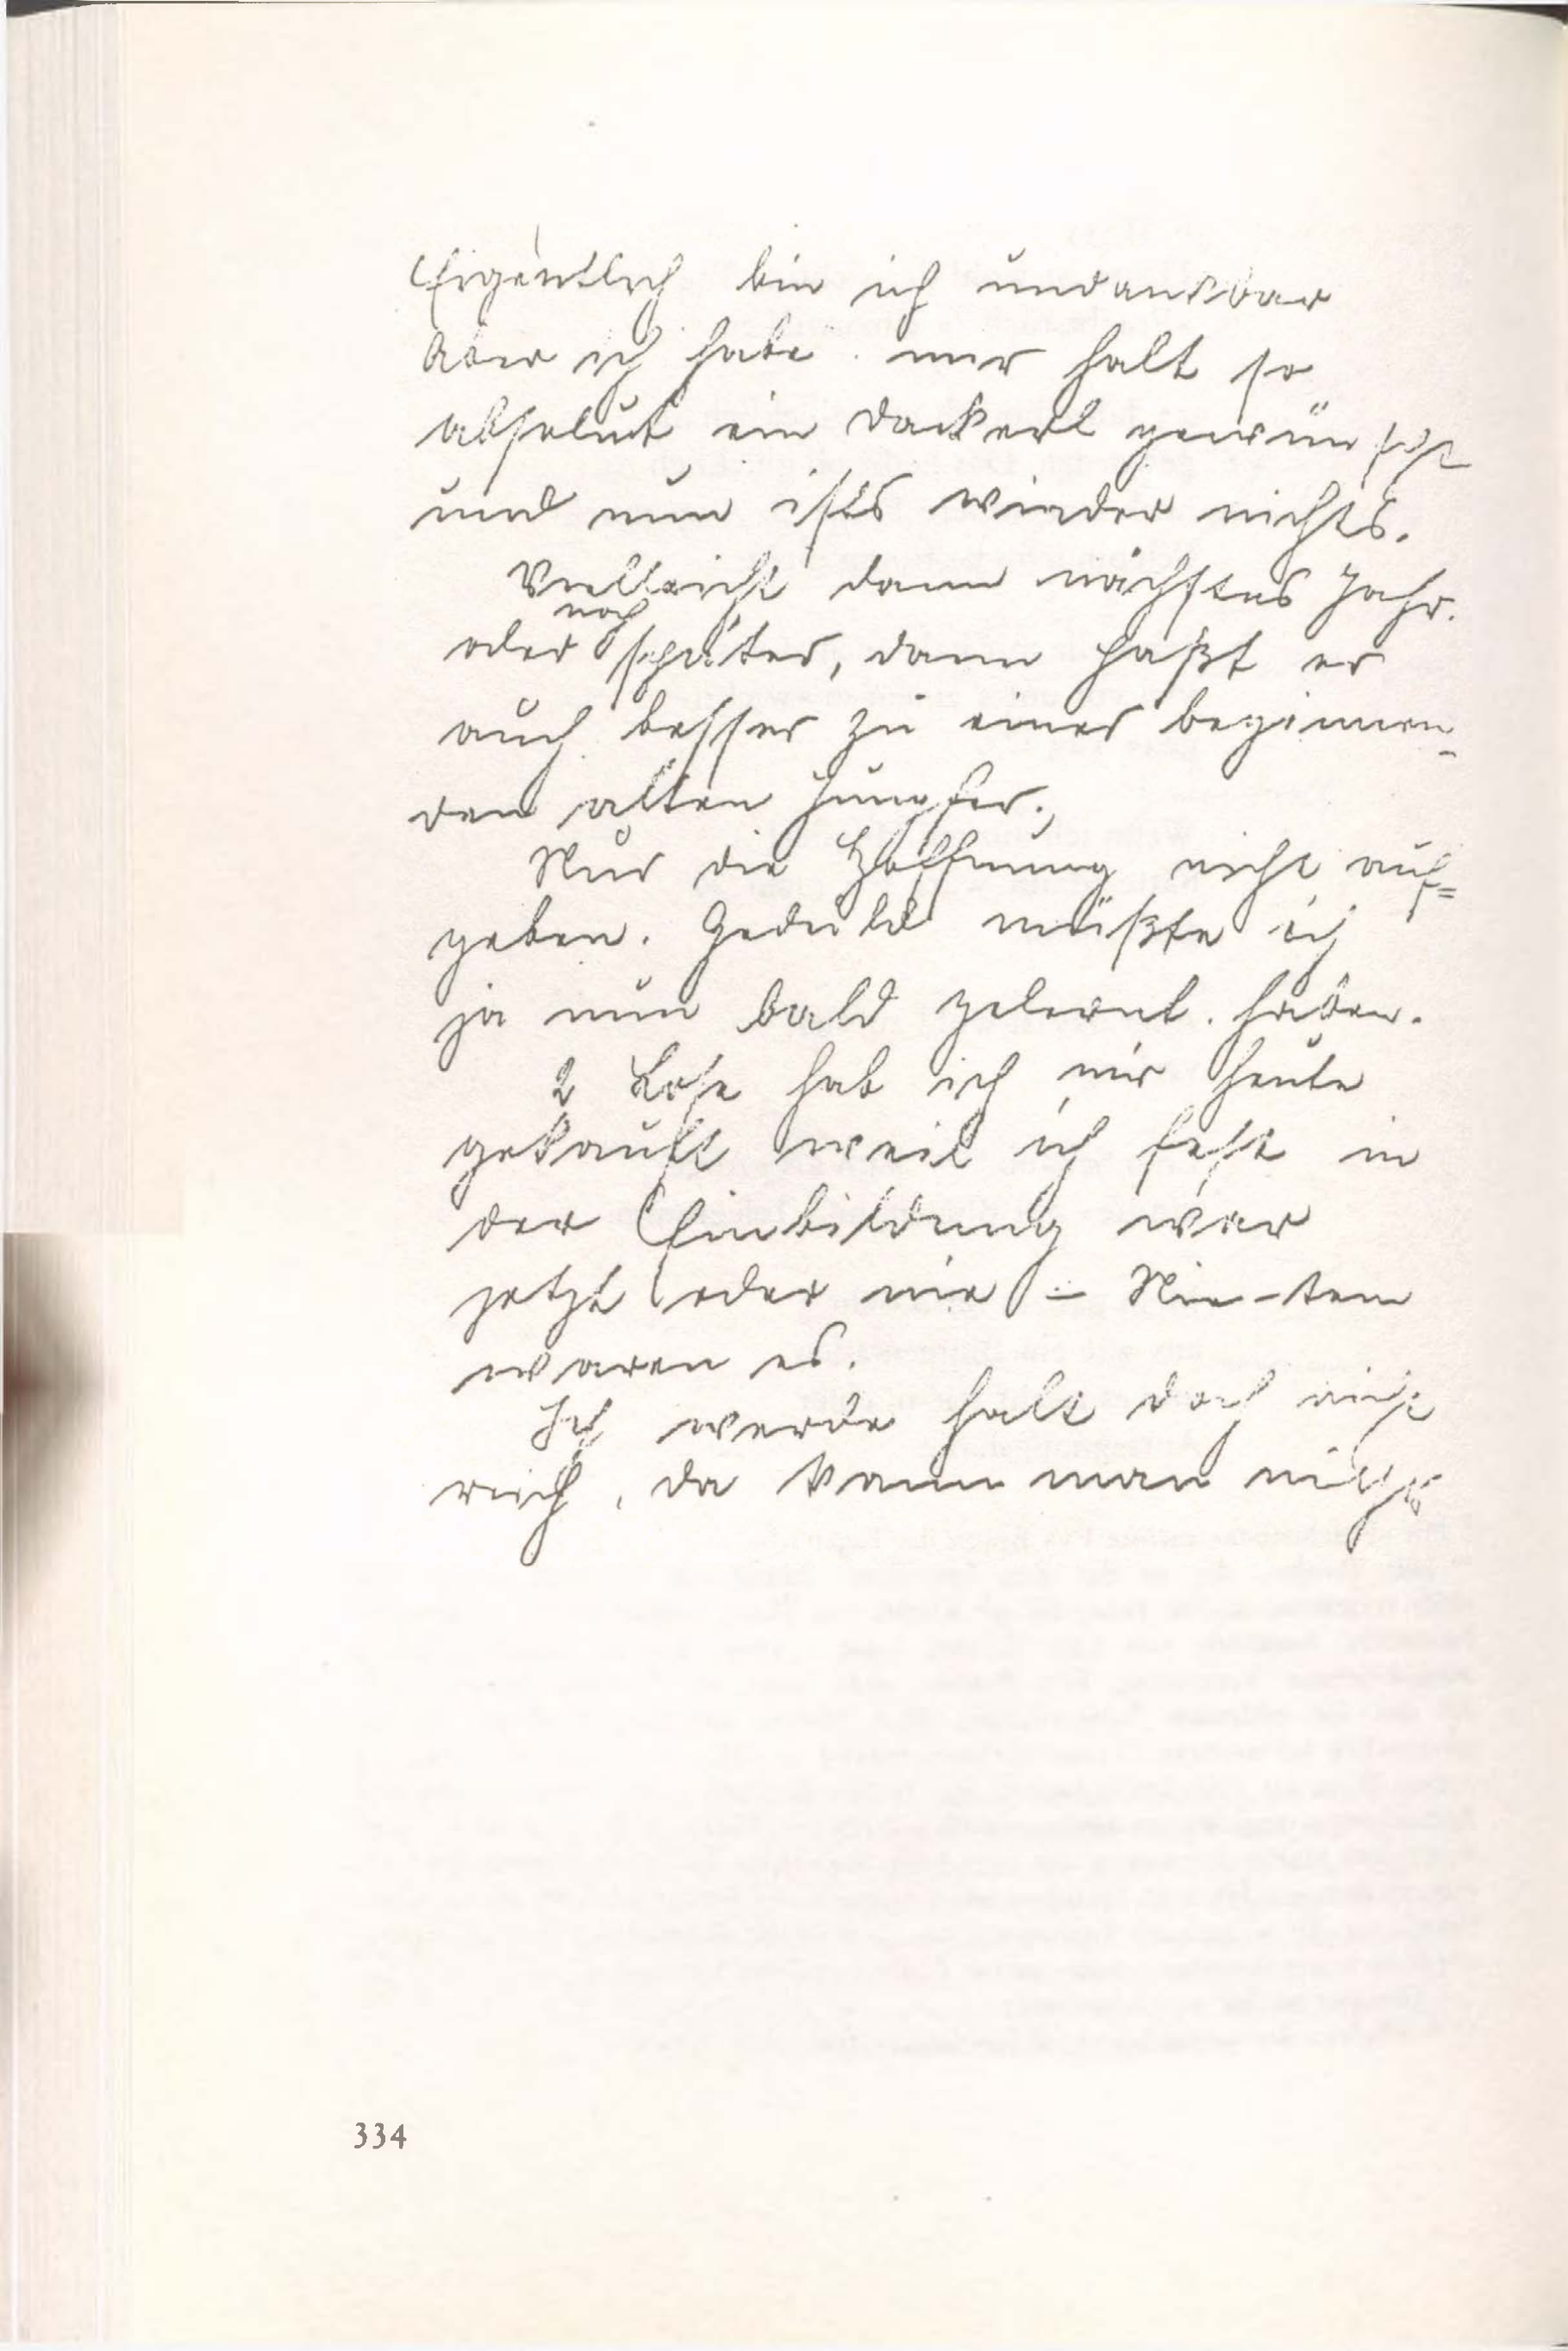 Eigentlich bin ich undankbar
Aber ich habe mir halt so
absolut ein Dackerl gewünscht
und nun ists wieder nichts.
Vielleicht dann nächstes Jahr.
noch
oder später, dann paßt er
auch besser zu einer beginnen-
den alten Jungfer.
Nur die Hoffnung nicht auf=
geben. Geduld müßte ich
ja nun bald gelernt haben.
2 Lose hab ich mir heute
gekauft weil ich fest in
der Einbildung war
jetzt oder nie – Nie-ten
waren es.
Ich werde halt doch nicht
reich, da kann man nichts
334